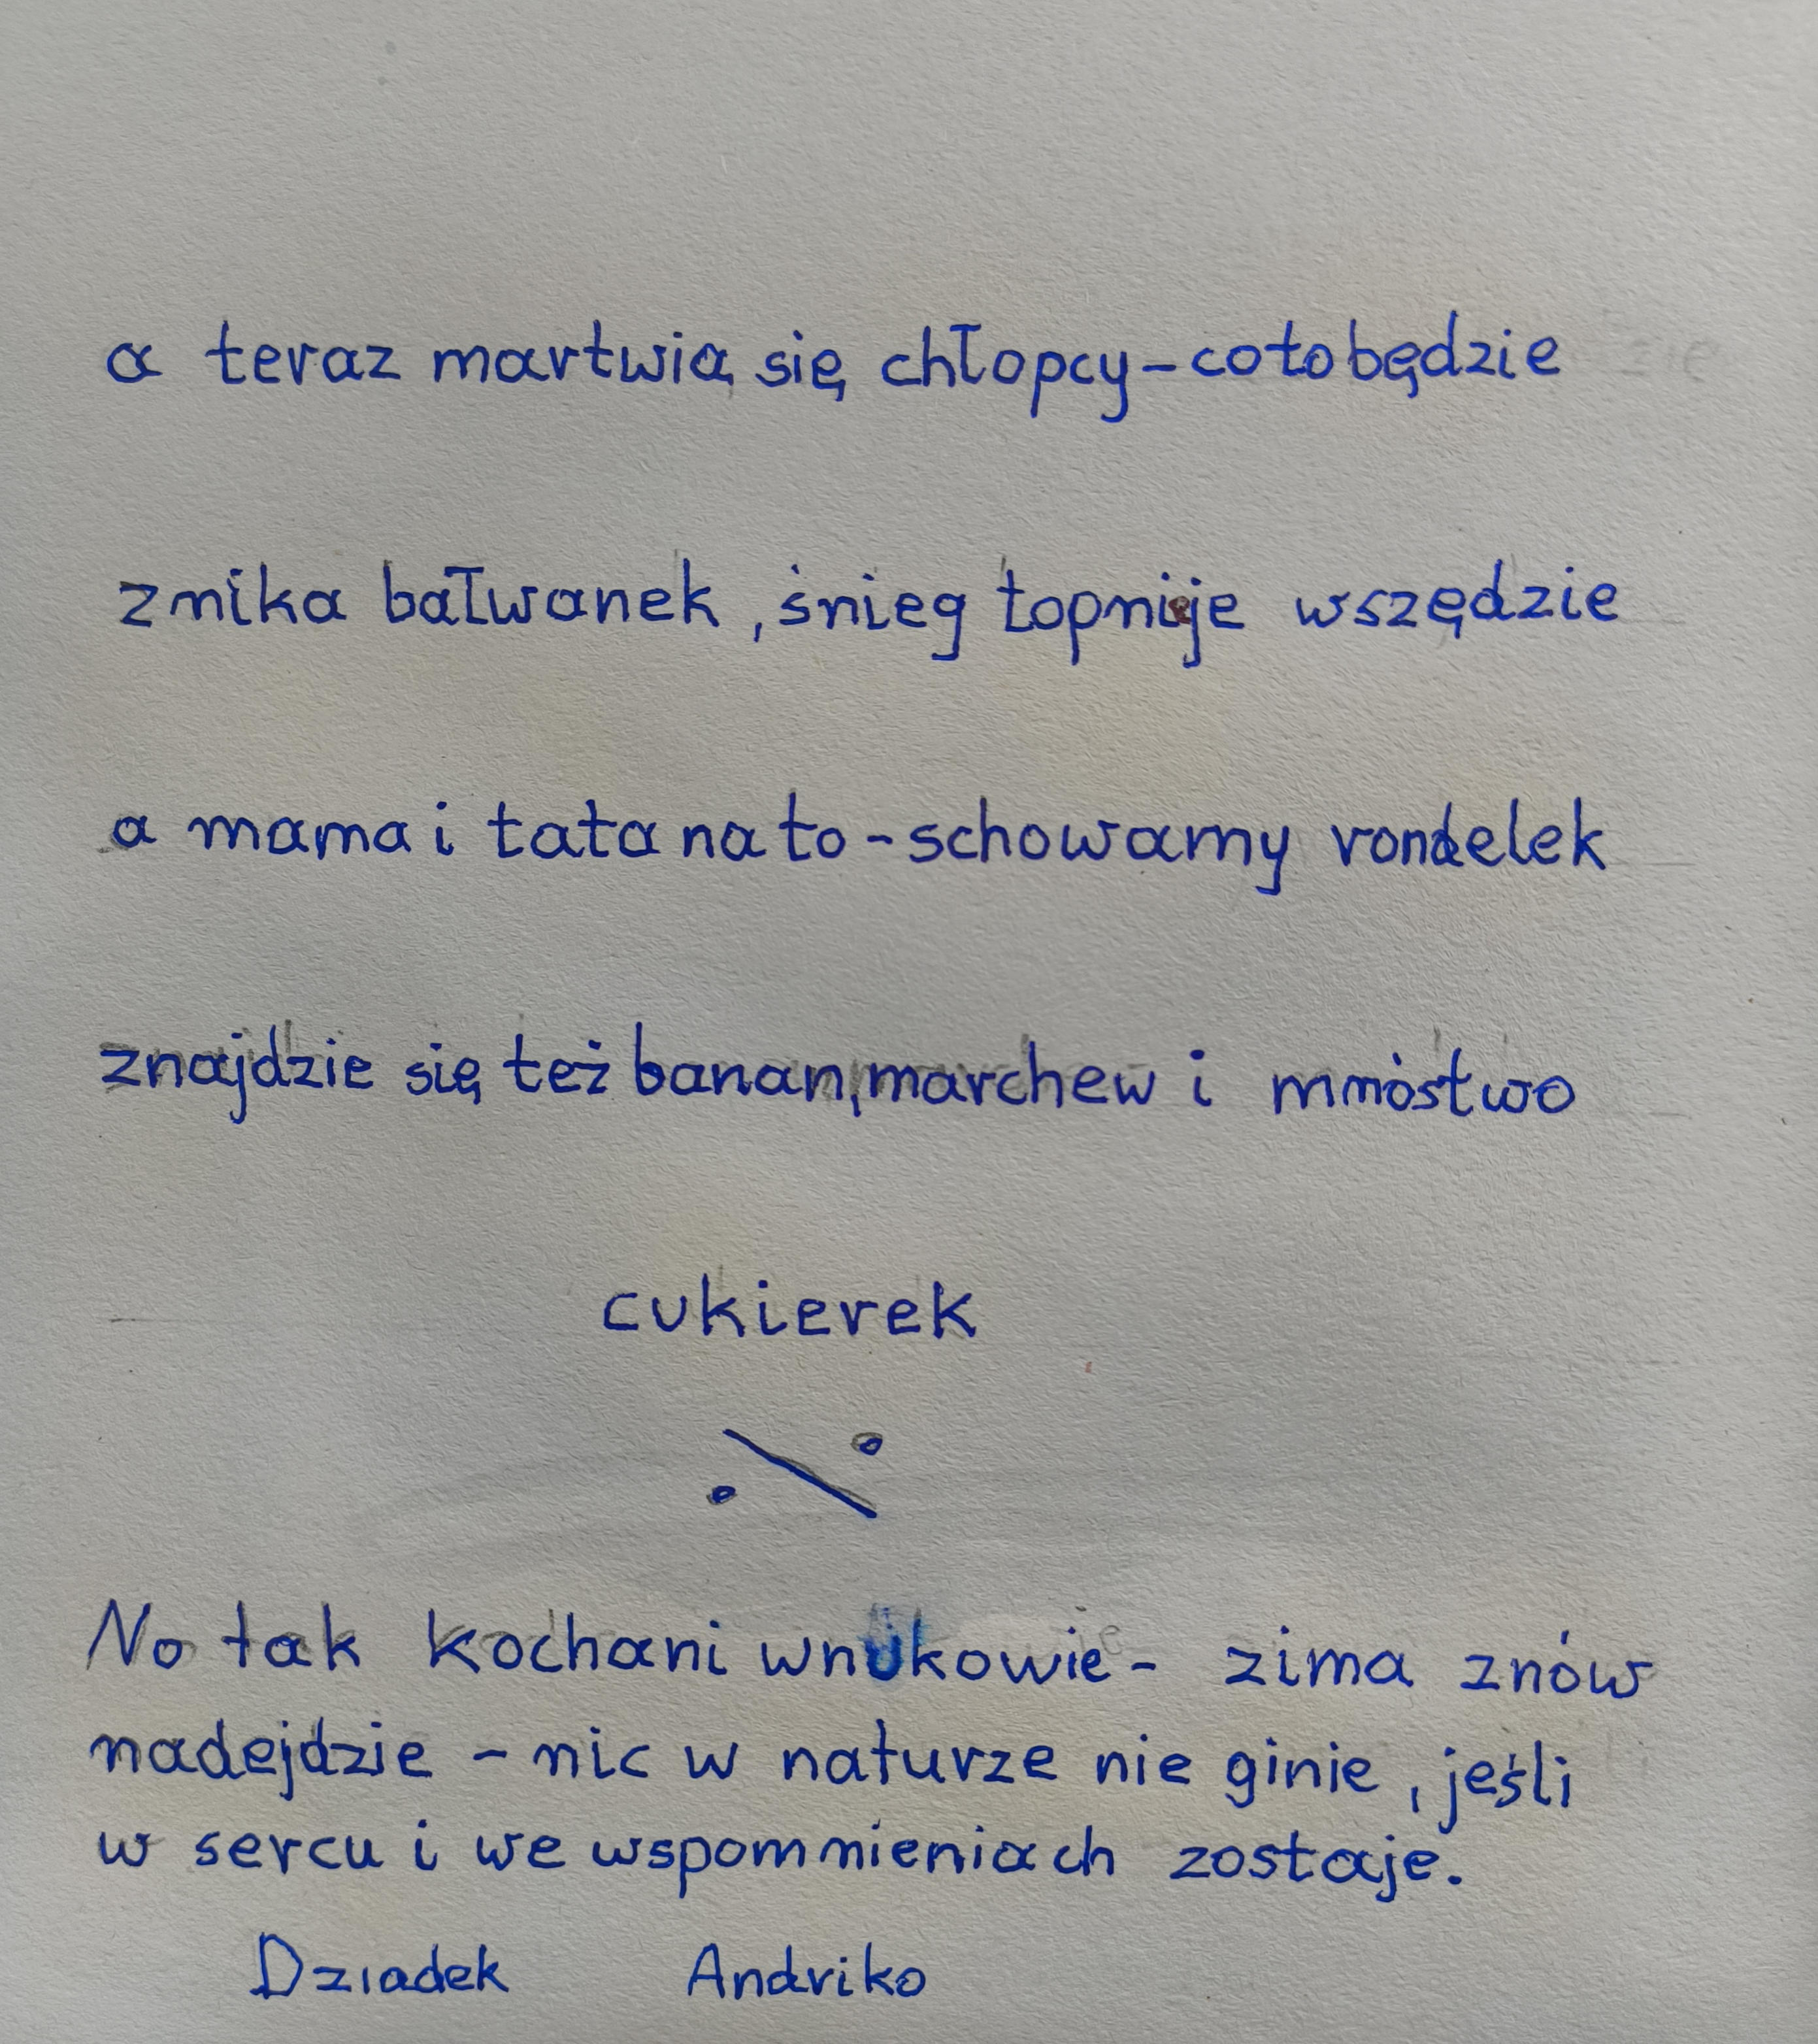 a teraz martwią się chłopcy - co to będzie
znika bałwanek, śnieg topnieje wszędzie
a mama i tata na to - schowamy rondelek
znajdzie się też banan, marchew i mnóstwo
cukierek
No tak kochani wnukowie - zima znów
nadejdzie - nic w naturze nie ginie, jeśli
w sercu i we wspomnieniach zostaje.
Dziadek Andriko